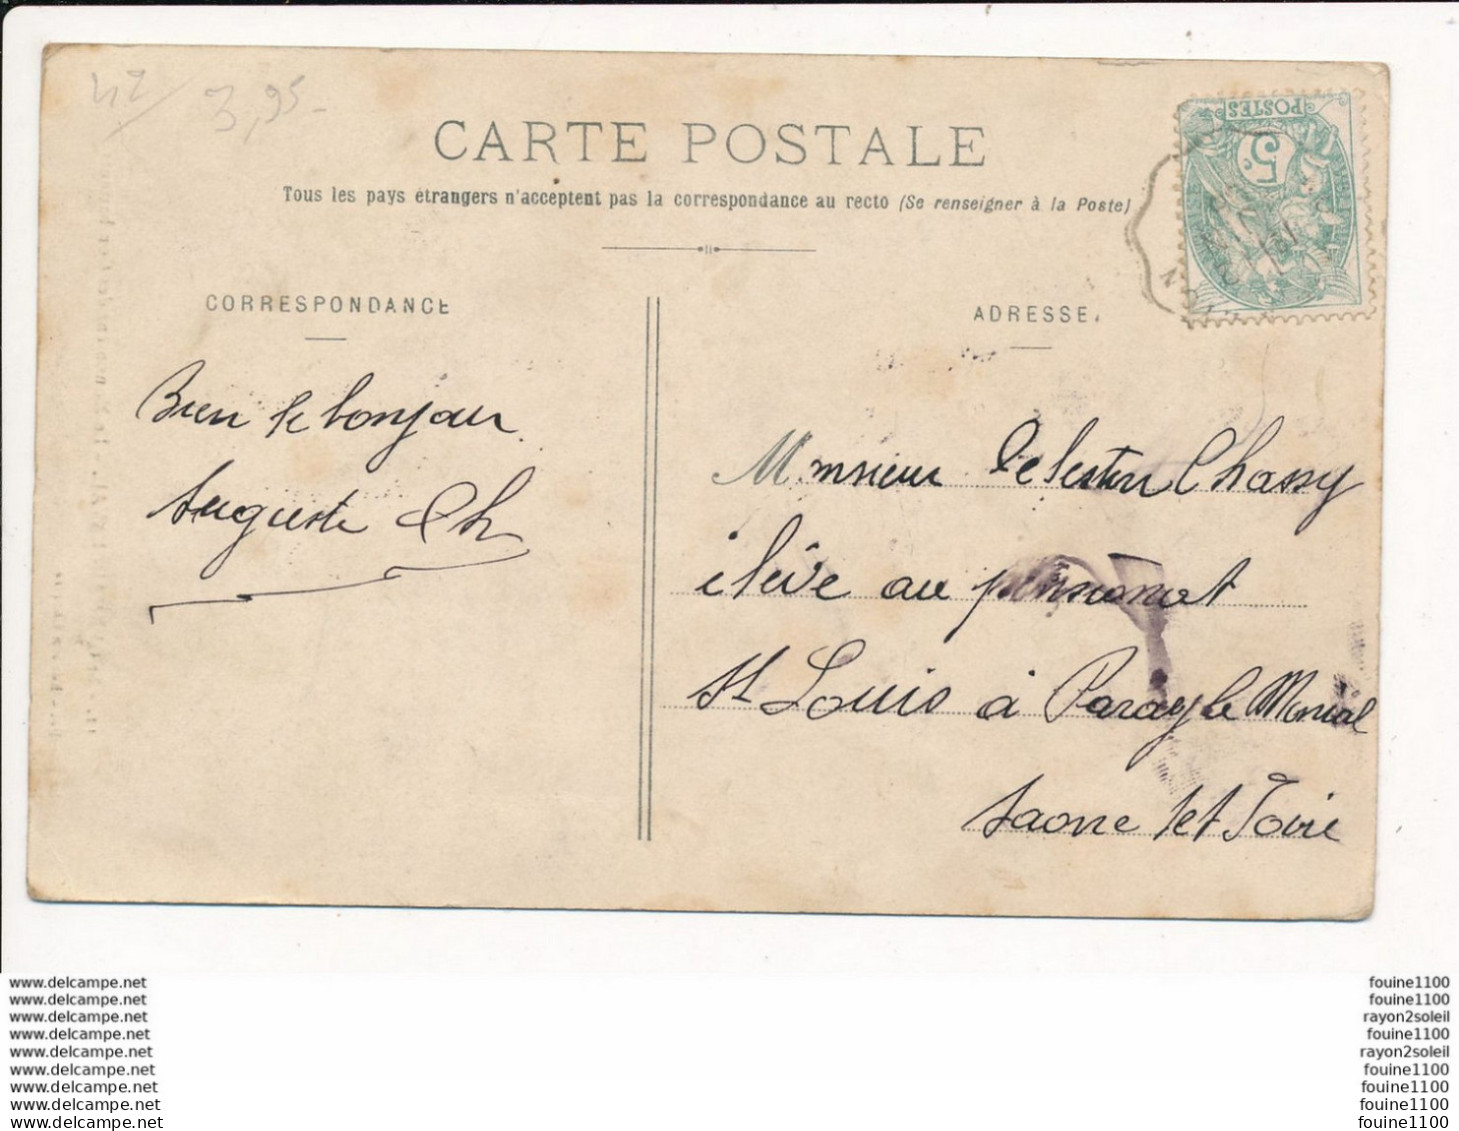 42 / 3,95-
CARTE POSTALE
Tous les pays étrangers n'acceptent pas la correspondance au recto (Se renseigner à la Poste)
POSTES
5c
CORRESPONDANCE
ADRESSE
Bien le bonjour
Auguste Ch
Monsieur Celestin Chassy
élève au pensionnat
St Louis à Paray le Monial
Saone et Loire
www.delcampe.net
www.delcampe.net
www.delcampe.net
www.delcampe.net
www.delcampe.net
www.delcampe.net
www.delcampe.net
www.delcampe.net
www.delcampe.net
fouine1100
fouine1100
rayon2soleil
fouine1100
rayon2soleil
fouine1100
fouine1100
fouine1100
fouine1100